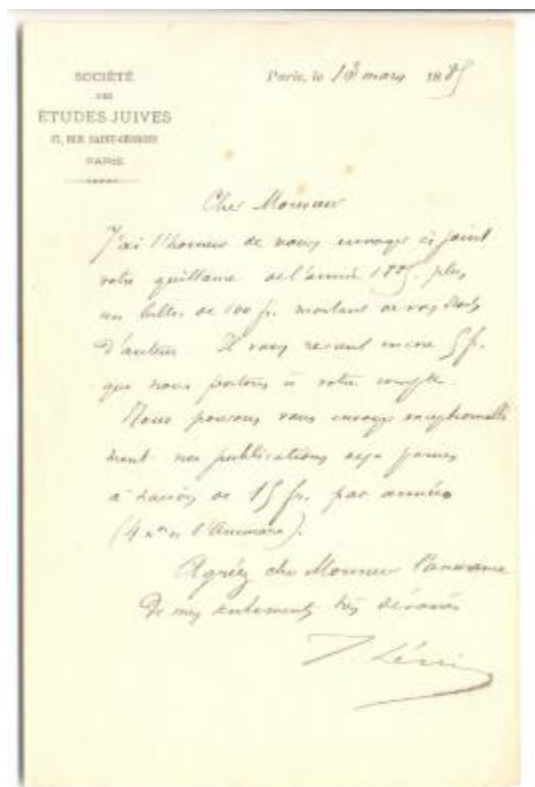 SOCIÉTÉ
DES
ÉTUDES JUIVES
17, RUE SAINT-GEORGES
PARIS
Paris, le 13 mars 1885
Cher Monsieur
J'ai l'honneur de vous envoyer ci joint
votre quittance de l'année 1885, plus
un billet de 100 fr. montant de vos droits
d'auteur. Il vous revient encore 5 fr.
que nous portons à votre compte.
Nous pouvons vous envoyer exceptionnelle
ment nos publications déjà parues
à raison de 15 fr. par année
(4 nos et l'Annuaire).
Agréez cher Monsieur l'assurance
de mes sentiments très dévoués
Lévi